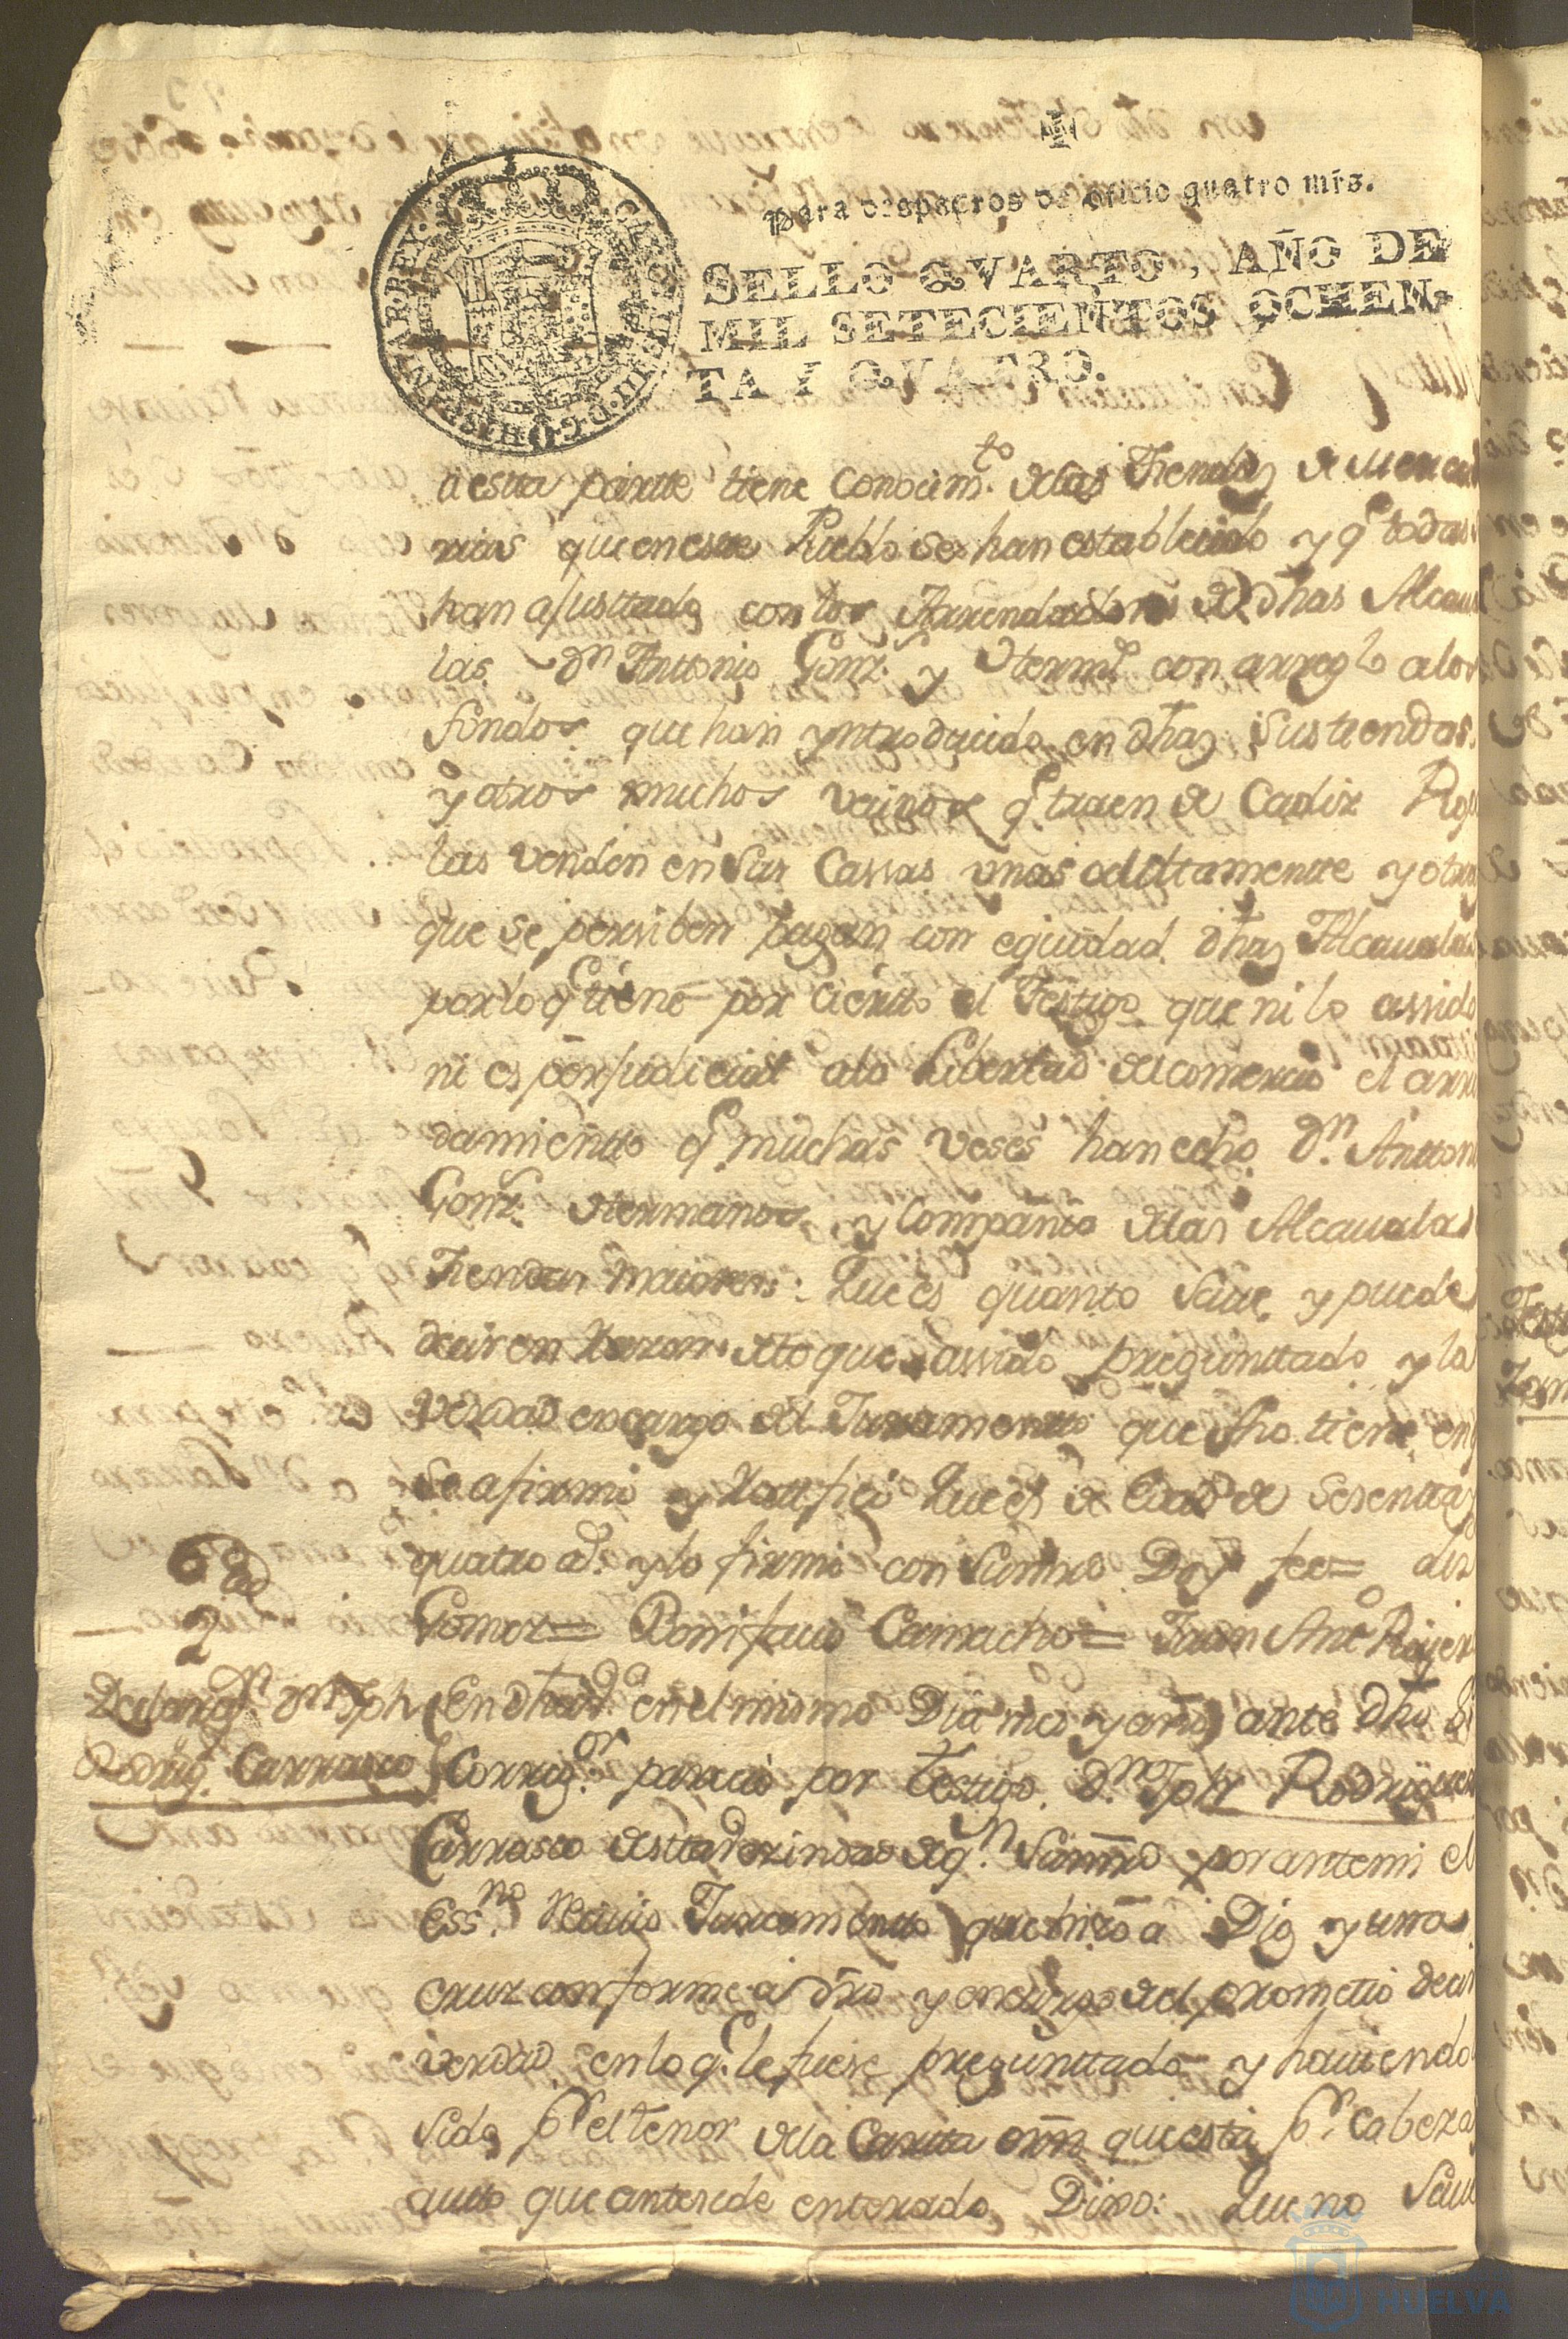 Para despachos de oficio quatro mrs.
SELLO QVARTO, AÑO DE
MIL SETECIENTOS OCHEN-
TA Y QVATRO.
a esta partte tiene conocim.to de las Tiendas de Mercad
rias que en este Pueblo se han establecido y q.e todas
han ajusttado con los Arrendadores de dhas Alcaua
las D.n Anttonio Gonz.z y Herm.o con arreglo a los
fondos que han yntroducido en dhas sus tiendas.
y otros muchos vecinos q.e traen de Cadiz Rop
las venden en sus Cassas unas ocultamente y otras
que se perciben pagan con equidad dhas Alcaualas
por lo q.e tiene por cierto el Testigo que ni lo assido
ni es perjudicial a la Libertad del comercio el arren
damientto q.e muchas veses han echo D.n Antton
Gonz.z Hermanos y Compañia de las Alcaualas
Tiendas maiores: Que es quanto saue y puede
decir en razon de lo que assido preguntado y la
verdad en cargo del Juramentto que fho tiene en q
se afirmó y ratificó Que es de edad de sesentta y
quatro a.s y lo firmó con su mrd Doy fee=
Gomez= Bonifacio Camacho= Juan Ant.o
6
2
Declaraz.n D.n Jph
Rodrig. Carrasco
En dha en el mismo Dia mes y año ante dho S.r
Corrig.or parecio por testigo D.n Jph Rodriguez
Carrasco de esta Vezindad de q.n su mrd por ante mi el
ess.no reciuió Juramentto que hizo a Dios y una
cruz conforme a dro y en cargo del prometió decir
verdad en lo q.e le fuese preguntado y hauiendo
sido p.r el tenor de la Cartta orn que está p.r Cabeza
autto que antesede enterado Dixo: Que no saue
HUELVA